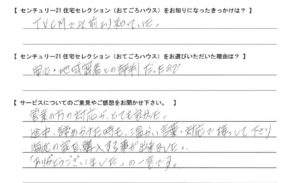 【 センチュリー21 住宅セレクション（おてごろハウス）をお知りになったきっかけは？ 】
TVCMで以前より知っていた。
【 センチュリー21 住宅セレクション（おてごろハウス）をお選びいただいた理由は？ 】
安心・地域密着との評判だったので
【 サービスについてのご意見やご感想をお聞かせ下さい。 】
営業の方の対応が、とても良かった。
途中、諦めかけた時も、温かい言葉・対応で接して下さり
購入する事が出来ました。
「ありがとうございました」の一言です。